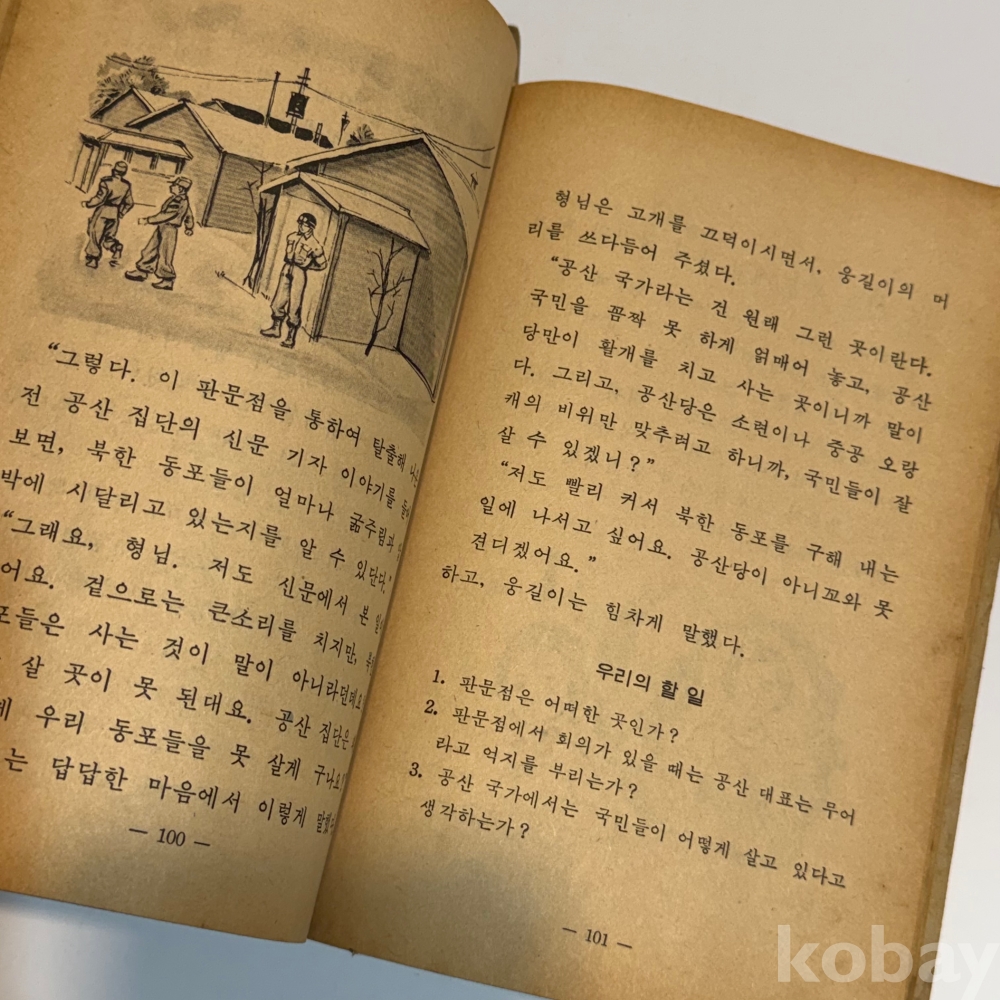 “그렇다. 이 판문점을 통하여 탈출해
전 공산 집단의 신문 기자 이야기를
보면, 북한 동포들이 얼마나 굶주림과
박에 시달리고 있는지를 알 수 있단다.”
“그래요, 형님. 저도 신문에서 본
어요. 겉으로는 큰소리를 치지만,
포들은 사는 것이 말이 아니라던데요
살 곳이 못 된대요. 공산 집단은
우리 동포들을 못 살게 구나요
는 답답한 마음에서 이렇게
— 100 —
형님은 고개를 끄덕이시면서, 웅길이의 머
리를 쓰다듬어 주셨다.
“공산 국가라는 건 원래 그런 곳이란다.
국민을 꼼짝 못 하게 얽매어 놓고, 공산
당만이 활개를 치고 사는 곳이니까 말이
다. 그리고, 공산당은 소련이나 중공 오랑
캐의 비위만 맞추려고 하니까, 국민들이 잘
살 수 있겠니?”
“저도 빨리 커서 북한 동포를 구해 내는
일에 나서고 싶어요. 공산당이 아니꼬와 못
견디겠어요.”
하고, 웅길이는 힘차게 말했다.
우리의 할 일
1. 판문점은 어떠한 곳인가?
2. 판문점에서 회의가 있을 때는 공산 대표는 무어
라고 억지를 부리는가?
3. 공산 국가에서는 국민들이 어떻게 살고 있다고
생각하는가?
— 101 —
kobay